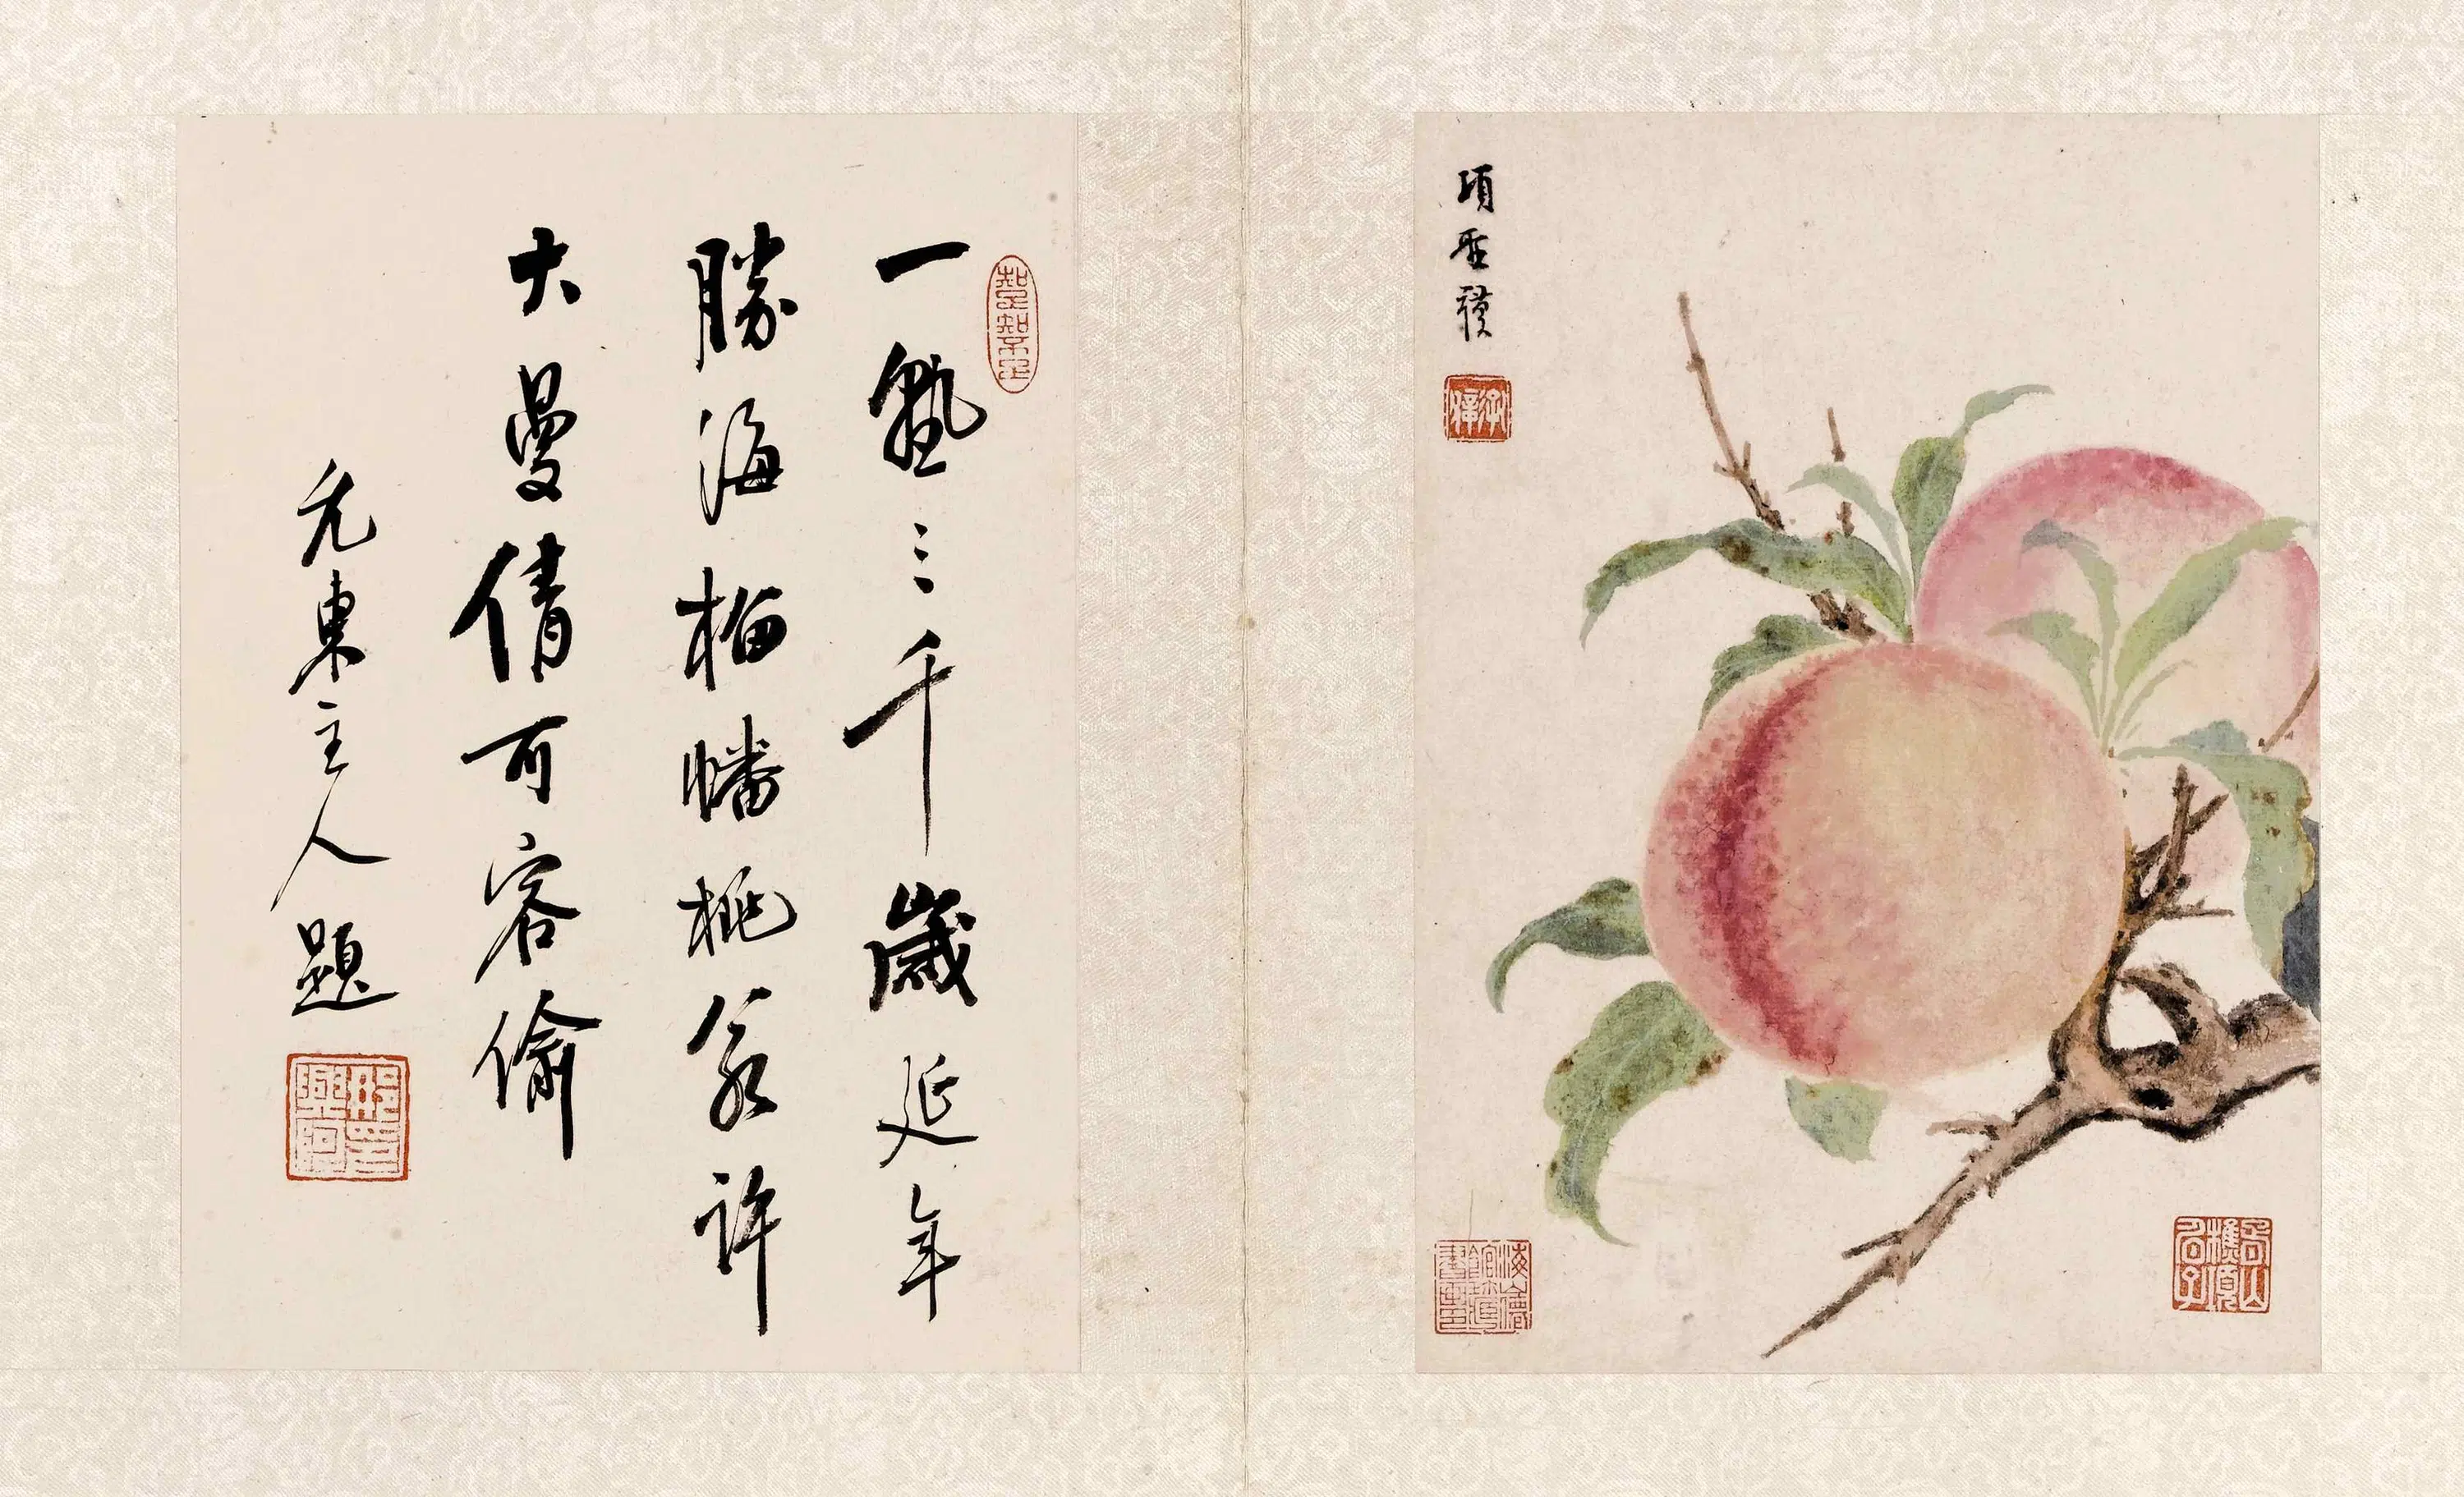 項聖謨
一熟三千歲延年
勝海榴幡桃許
大曼倩可容偷
東主人題
知足知不足